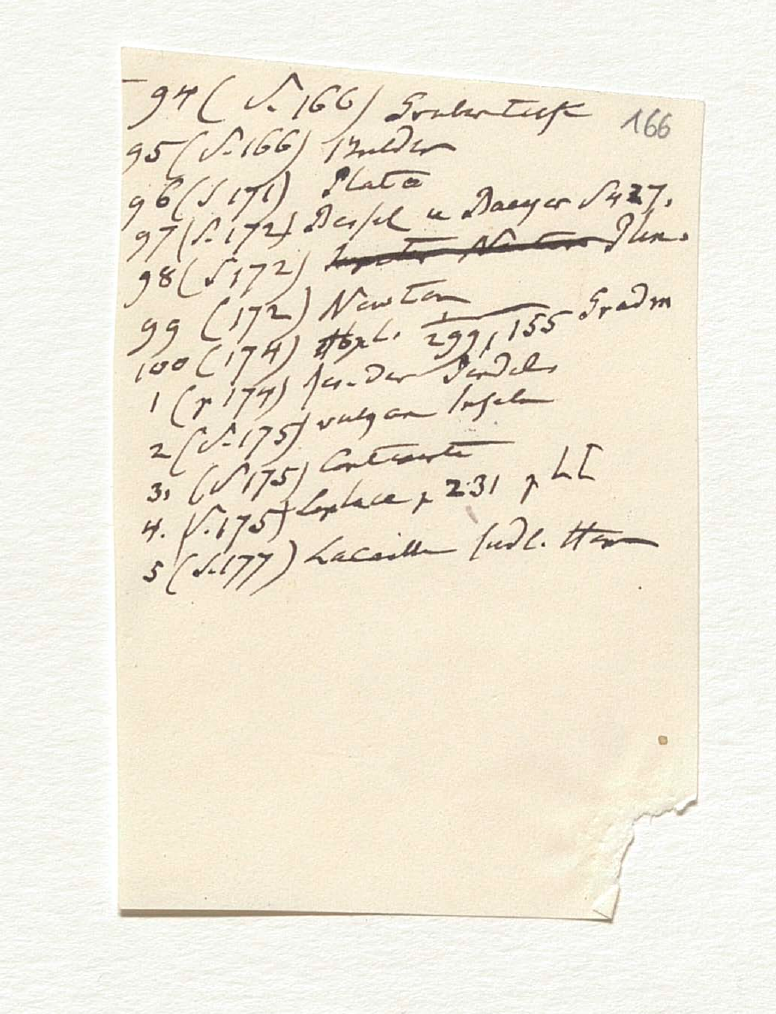 94 (S. 166) Grubentiefe 166
95 (S. 166) Mulden
96 (S 171) Plato
97 (S. 172) Bessel u Baeyer S 427.
98 (S 172) Jupiter Newton
99 (172) Newton
100 (174) 1/299,155 Gradm
1 (p 174) Pendel
2 (S. 175) vulcan Inseln
3. (S 175) Contraste
4. (S. 175) Laplace p 231 p LI
5 (S. 177) Lacaille südl. Hem